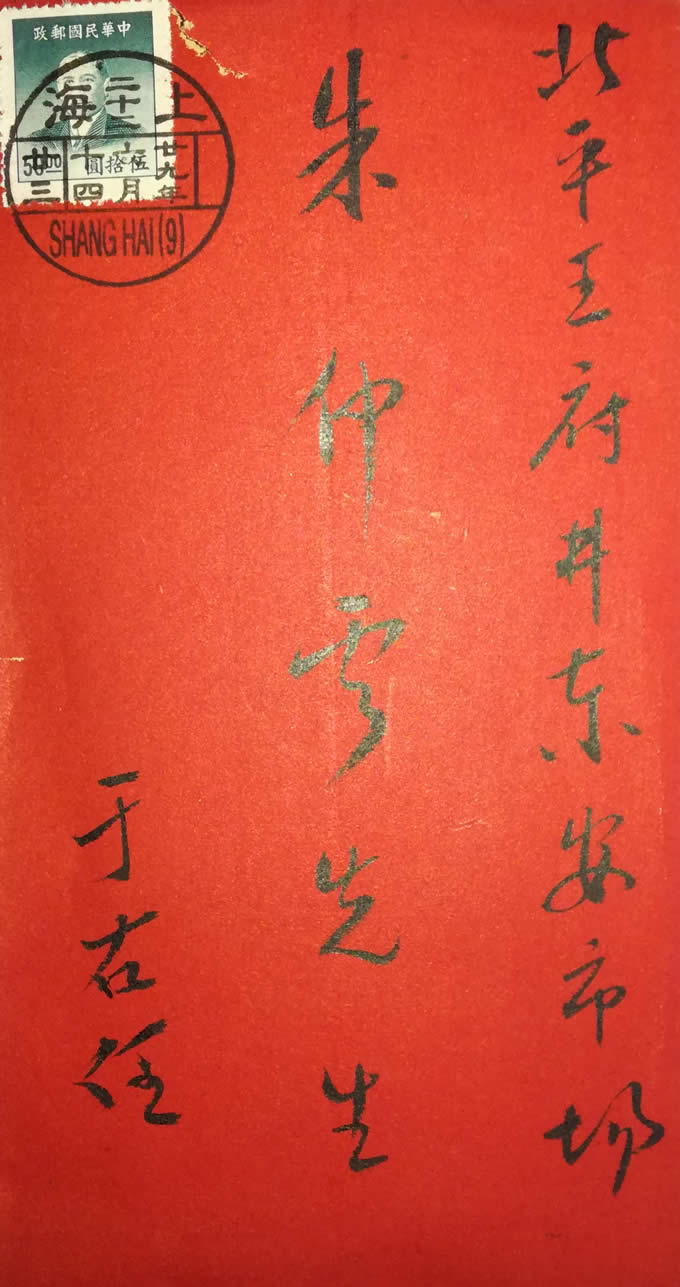 北平王府井东安市场
朱仲雲先生
于右任
政郵國民華中
50.00 圓拾伍
上海
二十二
廿九年
六月
十四
廿三
SHANG HAI (9)